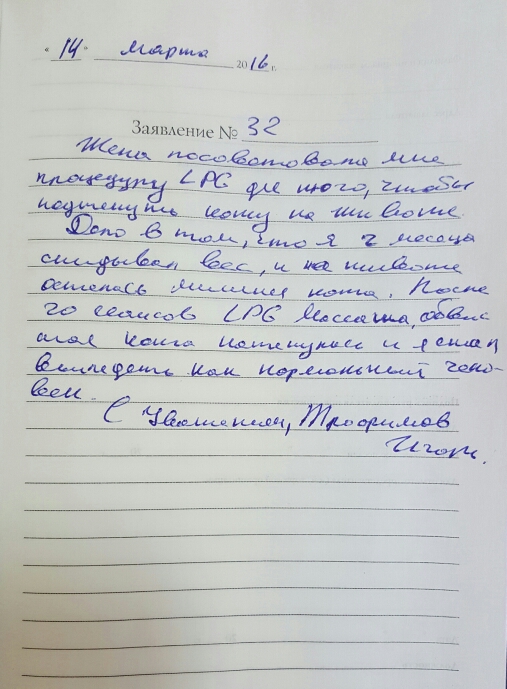 "14" марта 2016 г.
Заявление № 32
Жена посоветовала мне
процедуру LPG для того, чтобы
подтянуть кожу на животе.
Дело в том, что я 2 месяца
скидывал вес, и на животе
осталась лишняя кожа. После
20 сеансов LPG Массажа, обвис
шая кожа подтянулась и я стал
выглядеть как нормальный чело-
век.
С Уважением, Трофимов
Игорь.